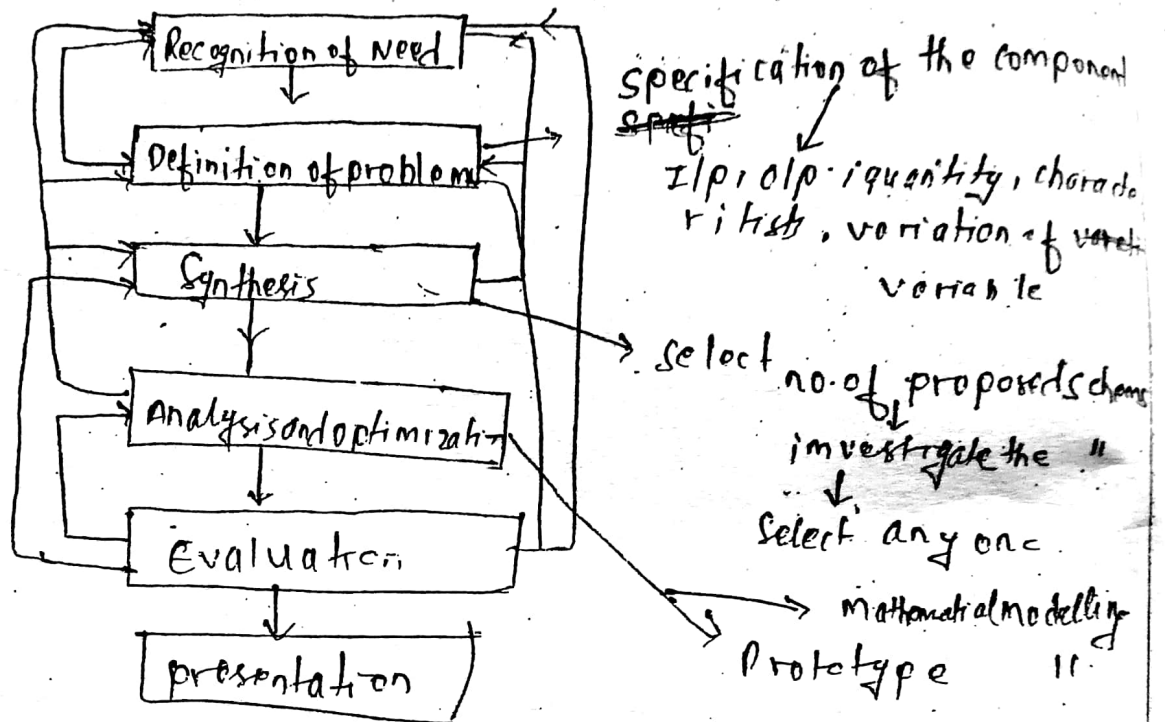 Recognition of Need
Definition of problem
Synthesis
Analysis and optimizatin
Evaluation
presentation
specification of the component
I/p, o/p. iquanitity, characte
ritish, variation of
variable
select
no. of proposed schems
imvestigate the "
select any one.
mathematial modelling
Prototype "